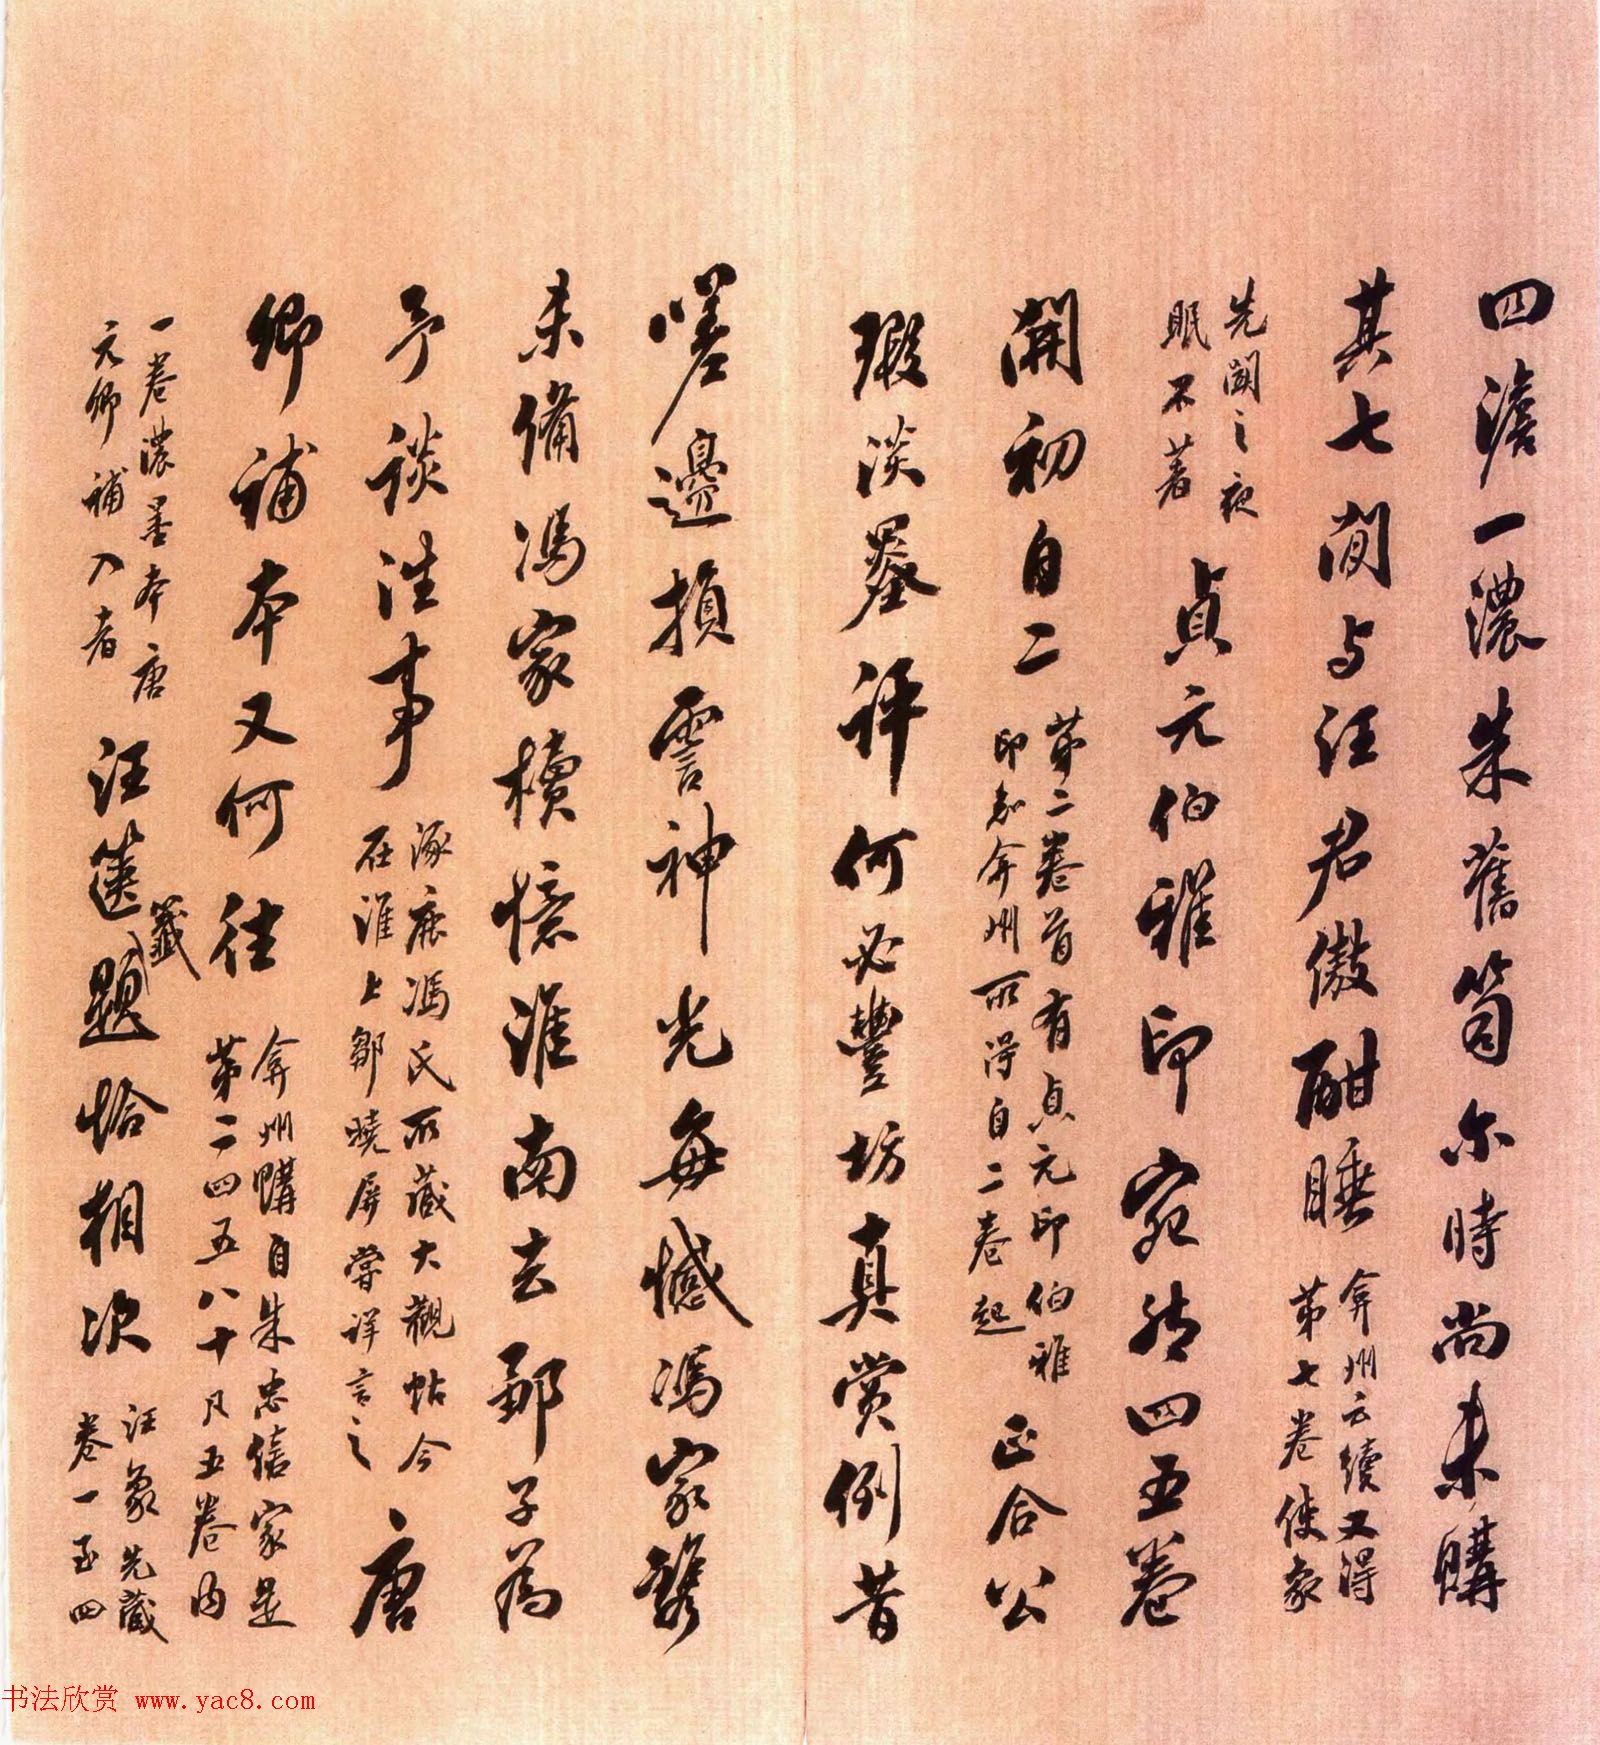 四澹一濃朱舊笥尓時尚未購
其七閒与汪君傲酣睡弇州云續又得
第七卷使象
先聞之夜
眠不著貞元伯雅印宛然四五卷
開初自二第二卷首有貞元印伯雅
印知弇州所得自二卷起正合公
瑕淡墨評何必豐坊真賞例昔
嗟邊損霅神光每憾馮家雋
未備馮家櫝憶淮南去鄒子為
予談往事涿鹿馮氏所藏大觀帖今
在淮上鄒曉屏嘗詳言之唐
卿補本又何往弇州購自朱忠僖家是
第二四五八十凡五卷内
一卷濃墨本唐
元卿補入者汪篋籤題恰相次汪象先藏
卷一至四
书法欣赏 www.yac8.com